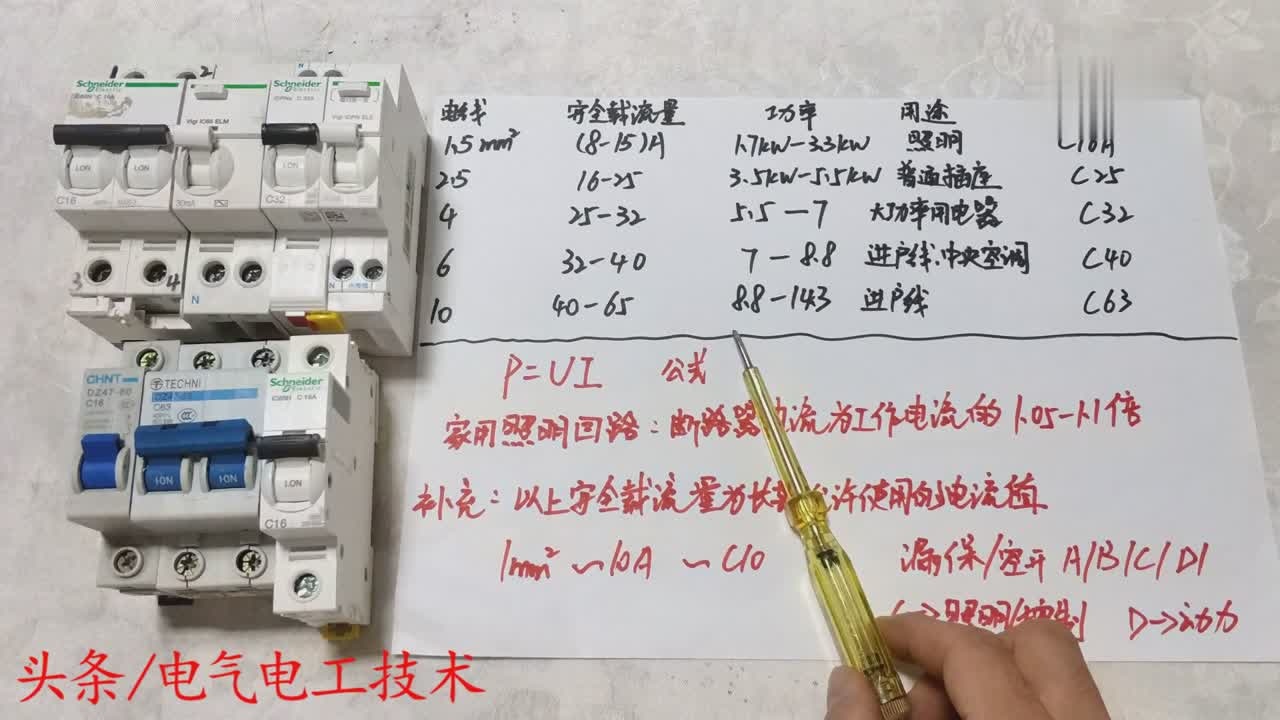 电线 安全载流量 功率 用途
1.5mm² (8-15)A 1.7kW-3.3kW 照明 C16A
2.5 16-25 3.5kW-5.5kW 普通插座 C25
4 25-32 5.5-7 大功率用电器 C32
6 32-40 7-8.8 进户线、中央空调 C40
10 40-65 8.8-14.3 进户线 C63
P=UI 公式
家用照明回路:断路器 流为工作电流的1.05-1.1倍
补充:以上安全载流量为长 许使用的电流值
1mm² ~10A ~C10
漏保/空开 A/B/C/D
C→照明/控制 D→动力
1 2
Schneider
Electric
C16
Vigi iC65 ELM
30mA
Schneider
Electric
C32
Vigi iDPN ELE
I.ON I.ON I.ON
3 4 N N
CHNT
DZ47-60
C16
TECHNI
C63
I·ON I·ON
Schneider
Electric
I.ON
C16
头条/电气电工技术